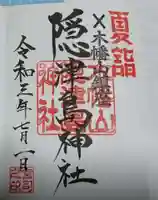 夏詣
木幡山鎮座
隠津島神社
令和三年七月一日